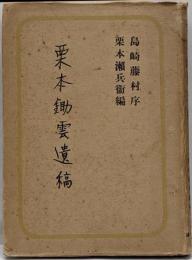 島崎藤村序
栗本瀬兵衞編
栗本鋤雲遺稿